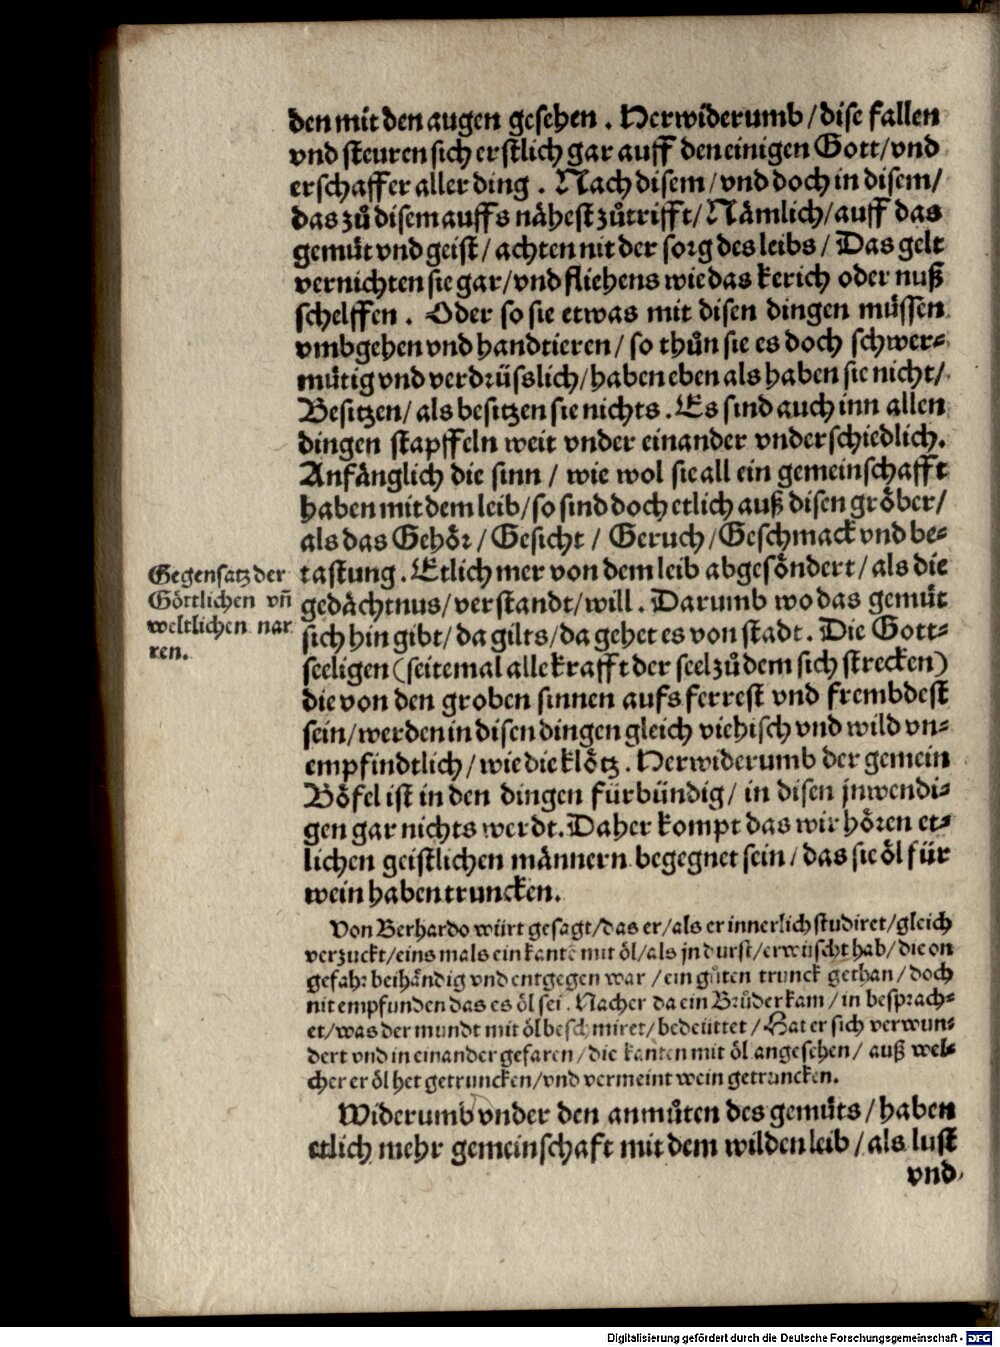 den mit den augen gesehen . Herwiderumb / dise fallen
vnd steuren sich erstlich gar auff den einigen Gott / vnd
erschaffer aller ding . Nach disem / vnd doch in disem /
das zů disem auffs nähest zůtrifft / Nämlich / auff das
gemüt vnd geist / achten nit der sorg des leibs / Das gelt
vernichten sie gar / vnd fliehens wie das kerich oder nuß
schelffen . Oder so sie etwas mit disen dingen müssen
vmbgehen vnd handtieren / so thůn sie es doch schwer⸗
mütig vnd verdrüsslich / haben eben als haben sie nicht /
Besitzen / als besitzen sie nichts . Es sind auch inn allen
dingen stapffeln weit vnder einander vnderschiedlich.
Anfänglich die sinn / wie wol sie all ein gemeinschafft
haben mit dem leib / so sind doch etlich auß disen gröber /
als das Gehör / Gesicht / Geruch / Geschmack vnd be⸗
tastung . Etlich mer von dem leib abgesöndert / als die
gedächtnus / verstandt / will . Darumb wo das gemüt
sich hin gibt / da gilts / da gehet es von stadt . Die Gott⸗
seeligen (seitemal alle krafft der seel zů dem sich strecken)
die von den groben sinnen aufs ferrest vnd frembdest
sein / werden in disen dingen gleich viehisch vnd wild vn⸗
empfindtlich / wie die klötz . Herwiderumb der gemein
Böfel ist in den dingen fürbündig / in disen jnwendi⸗
gen gar nichts werdt. Daher kompt das wir hören et⸗
lichen geistlichen männern begegnet sein / das sie öl für
wein haben truncken.
Gegensatz der
Göttlichen vñ
weltlichen nar
ren.
Von Berhardo würt gesagt / das er / als er innerlich studiret / gleich
verzuckt / eins mals ein kantē mit öl / als jn durst / erwüscht hab / die on
gefahr beihändig vnd entgegen war / ein gůten trunck gethan / doch
nit empfunden das es öl sei . Nacher da ein Brůder kam / in besprach⸗
et / was der mundt mit öl beschmiret / bedeüttet / Hat er sich verwun⸗
dert vnd in einander gefaren / die kanten mit öl angesehen / auß wel⸗
cher er öl het getruncken / vnd vermeint wein getruncken.
Widerumb vnder den anmůten des gemüts / haben
etlich mehr gemeinschaft mit dem wilden leib / als lust
vnd
Digitalisierung gefördert durch die Deutsche Forschungsgemeinschaft - DFG